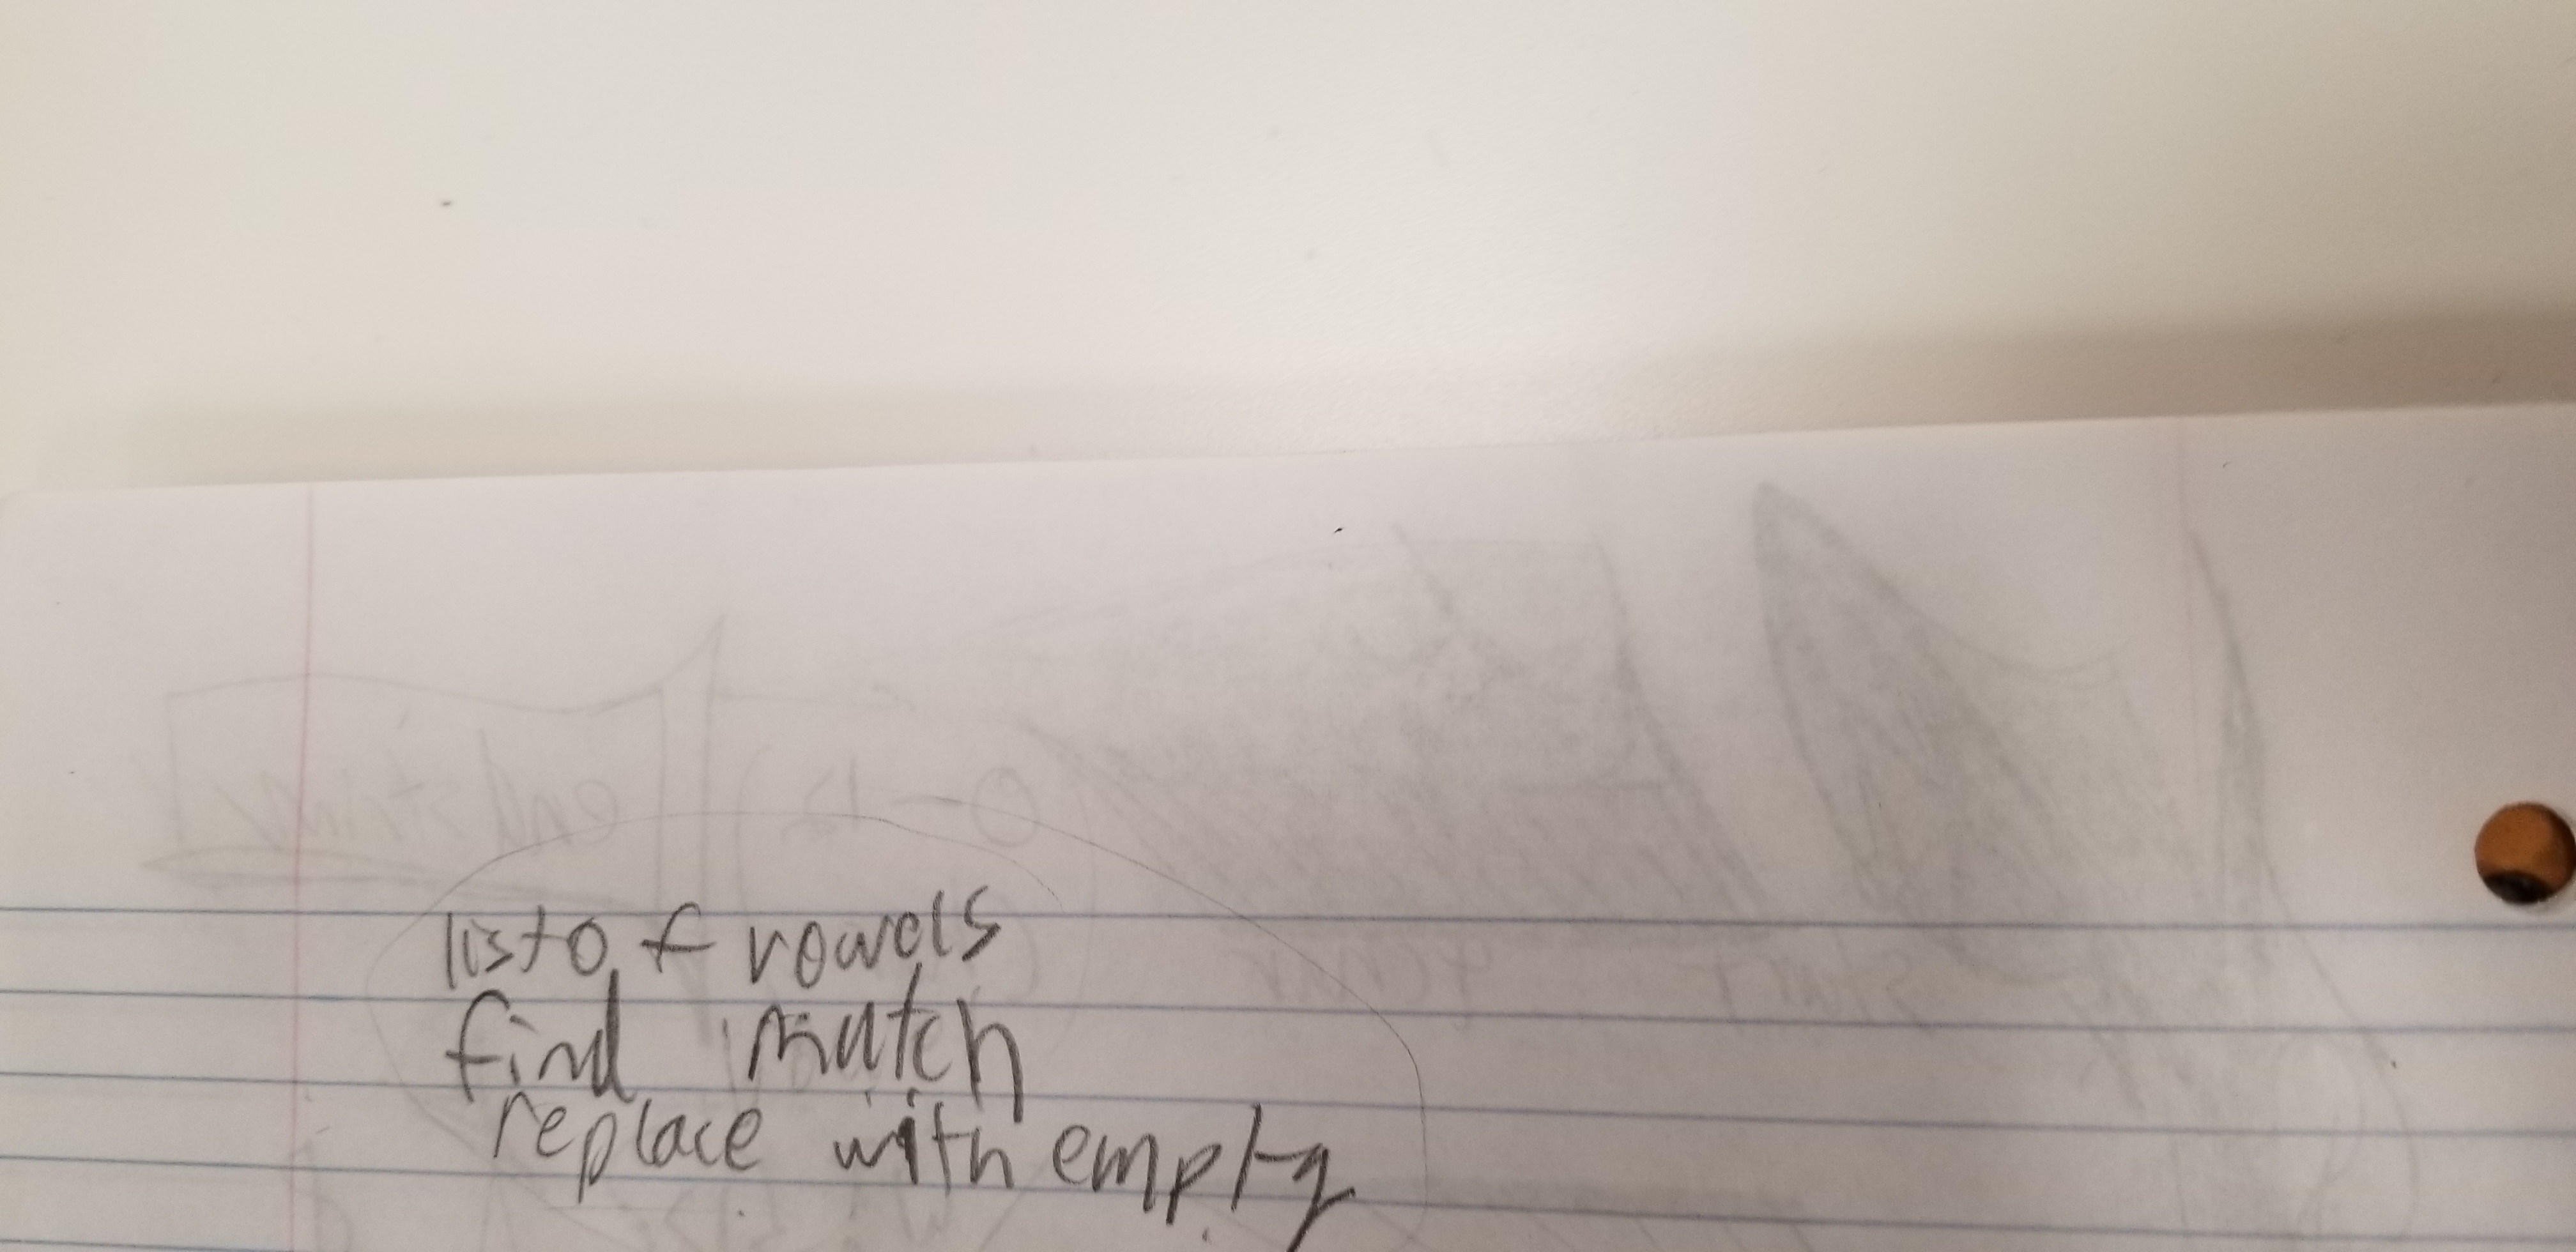 list of vowels
find match
replace with empty